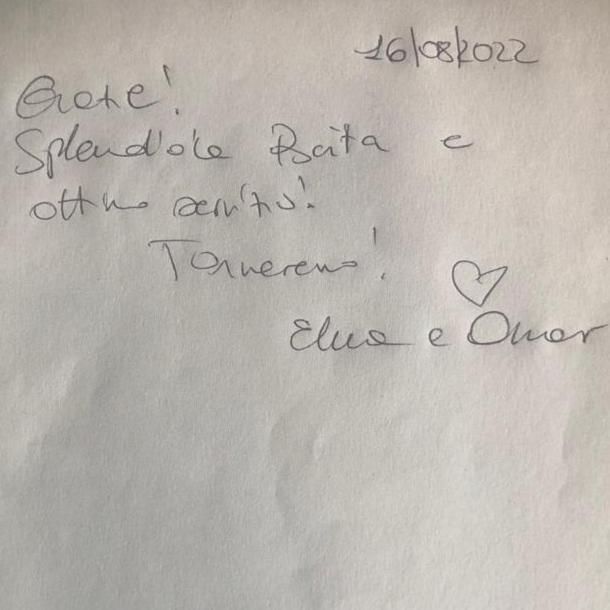 16/08/2022
Grazie!
Splendida Baita e
ottimo servizio!
Torneremo!
Elisa e Omar